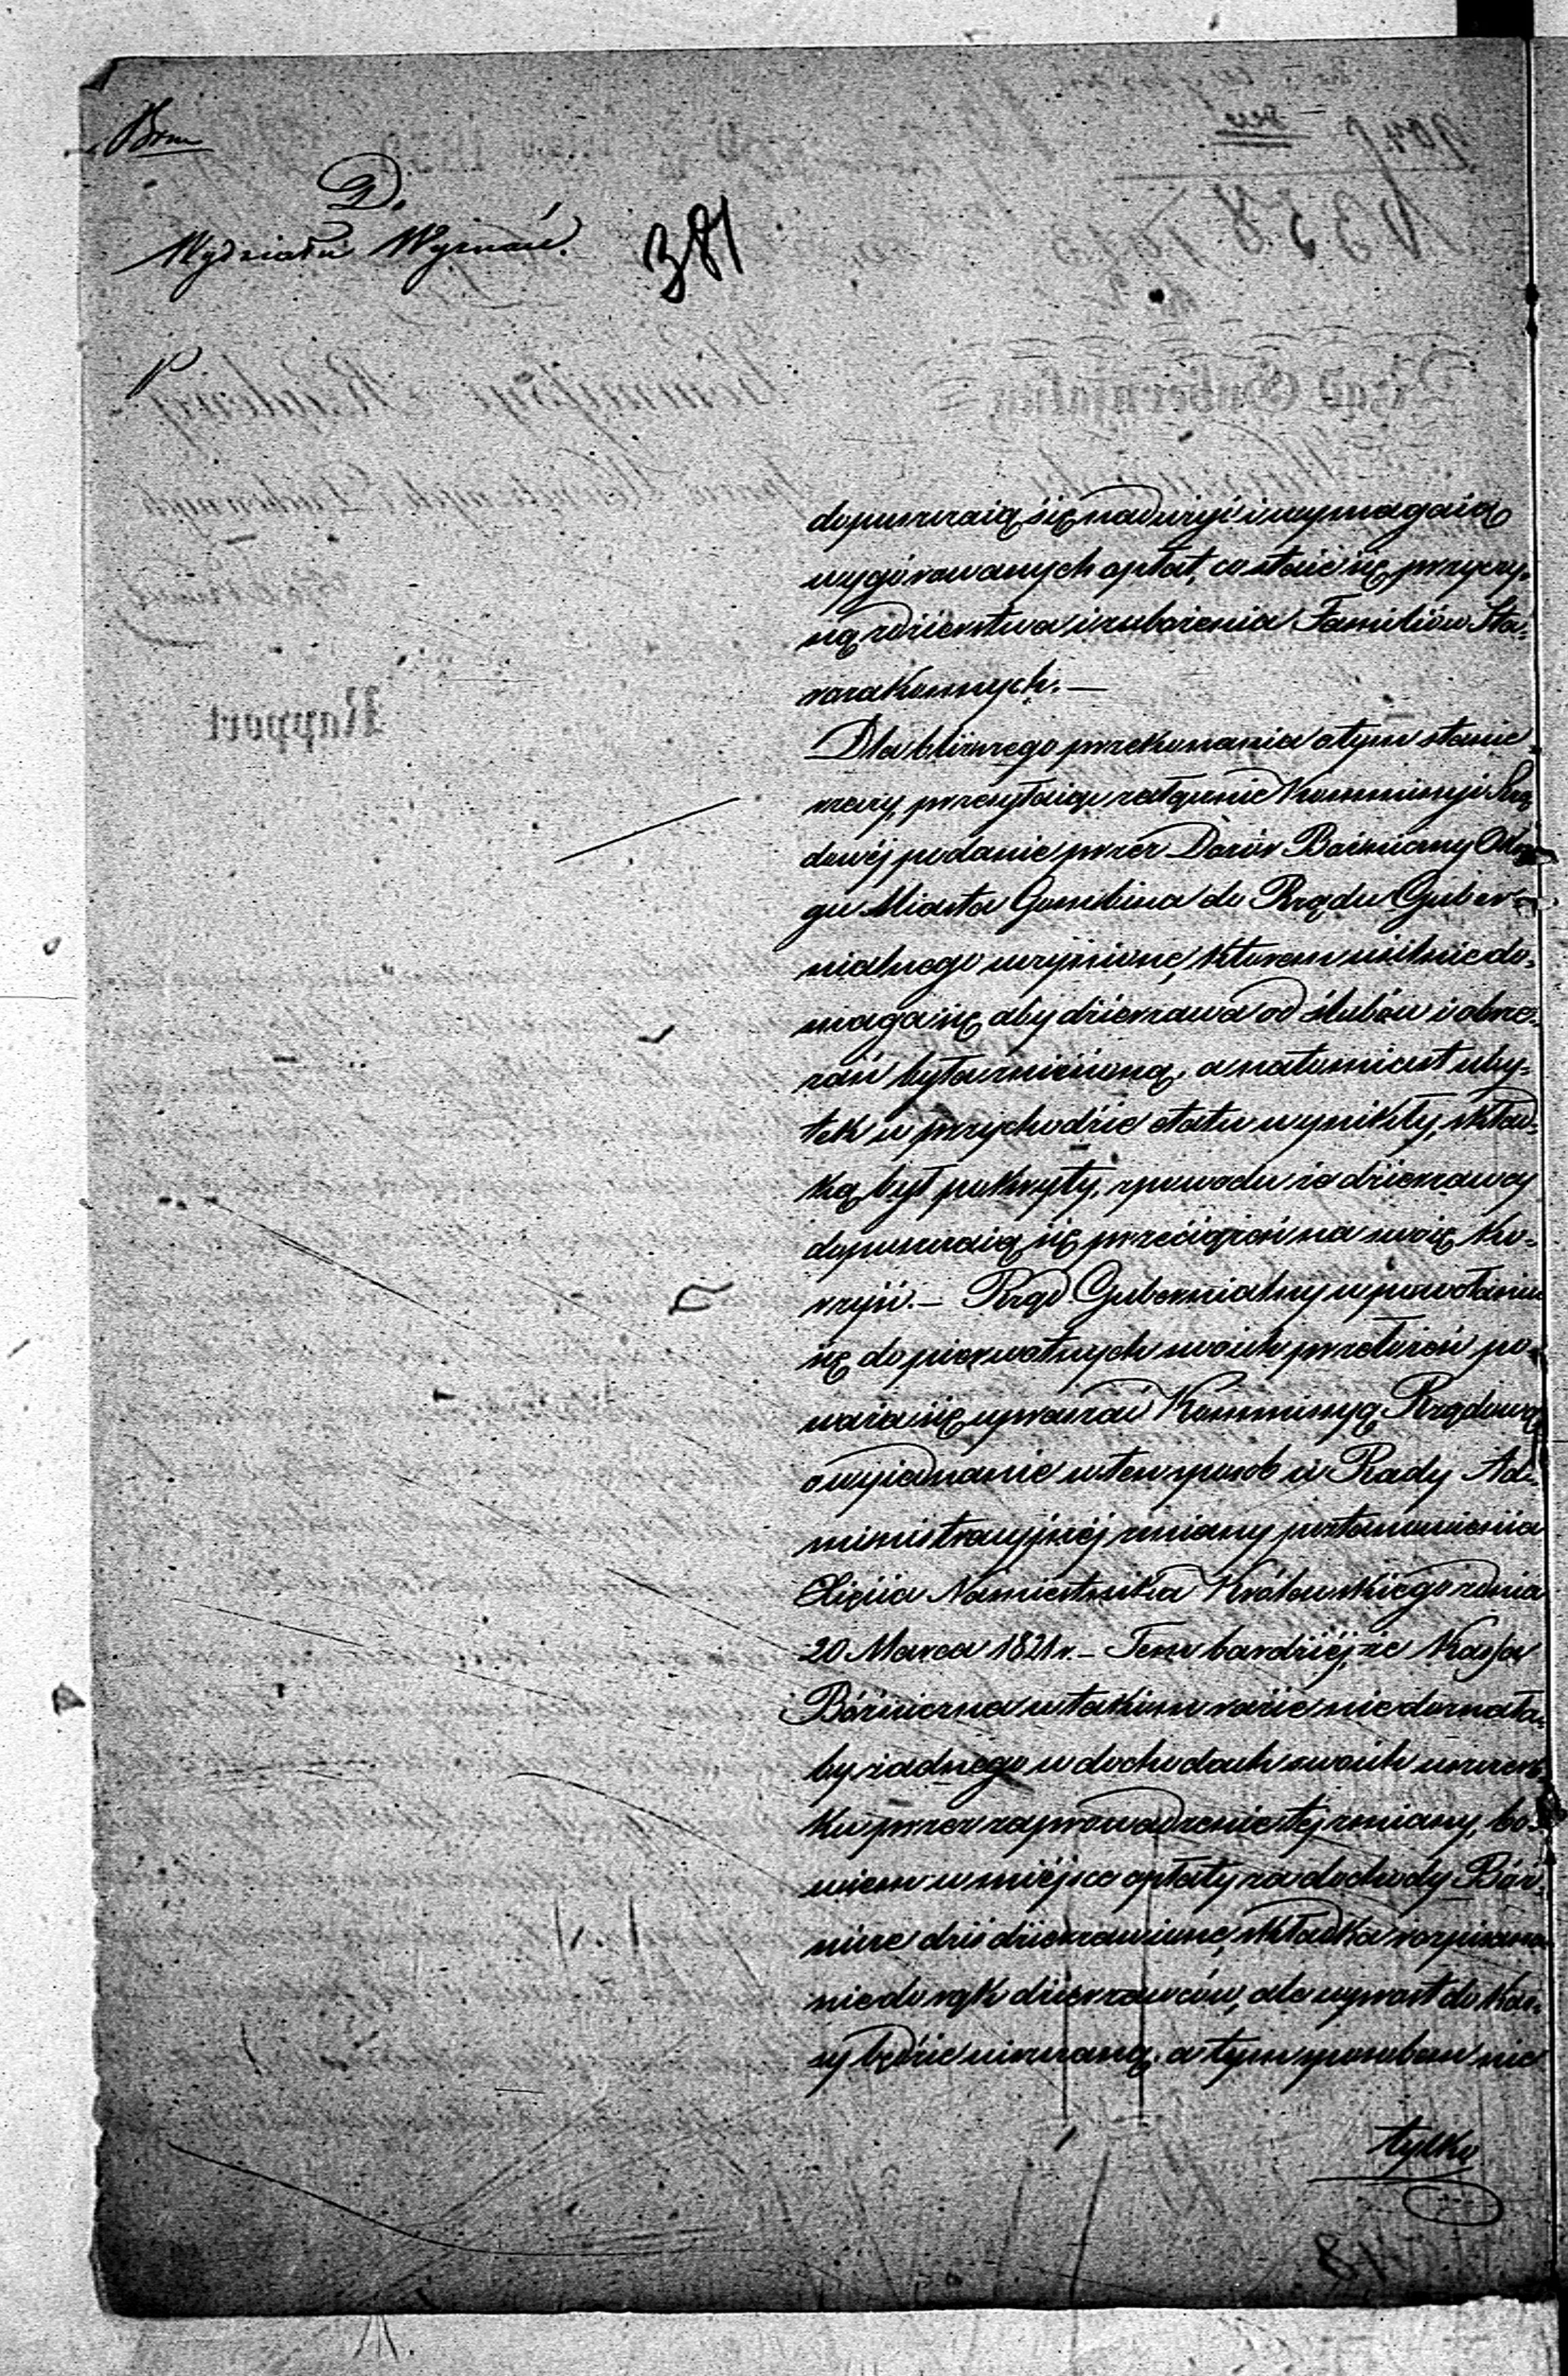 D.
Wydziału Wyznań.
381
dopuszczaią się nadużyć i wymagaią
wygórowanych opłat, co staie się przyczy-
ną zdzierstwa i zubożenia Familiów Sta-
rozakonnych. —
Dla bliższego przekonania o tym stanie
rzeczy, przesyłaiąc w załączeniu Kommissyi Rzą
dowéj podanie przez Dozór Bóżniczny Okrę
gu Miasta Gombina do Rządu Guber-
nialnego uczynione, którem usilnie do-
maga się, aby dzierżawa od ślubów i obrze-
zań była zniesioną, a natomiast uby-
tek w przychodzie etatu wynikły, skład-
ką był pokryty, z powodu że dzierżawcy
dopuszczaią się przeciążeń na swoię ko-
rzyść. — Rząd Gubernialny w powołaniu
się do pierwotnych swoich przełożeń po-
waża się upraszać Kommissyą Rządową
o wyiednanie w ten sposób u Rady Ad-
ministracyjnéj zmiany postanowienia
Xięcia Namiestnika Królewskiego z dnia
20 Marca 1821 r. — Tem bardziéj, że Kassa
Bóżniczna w takim razie nie doznała-
by żadnego w dochodach swoich uszczerb
ku przez zaprowadzenie téj zmiany, bo-
wiem w miéjsce opłaty za dochody Bóż-
nicze dziś dzierżawione, składka rozpisana
nie do rąk dzierżawców, ale wprost do Kas-
sy będzie wnoszoną, a tym sposobem nie
tylko